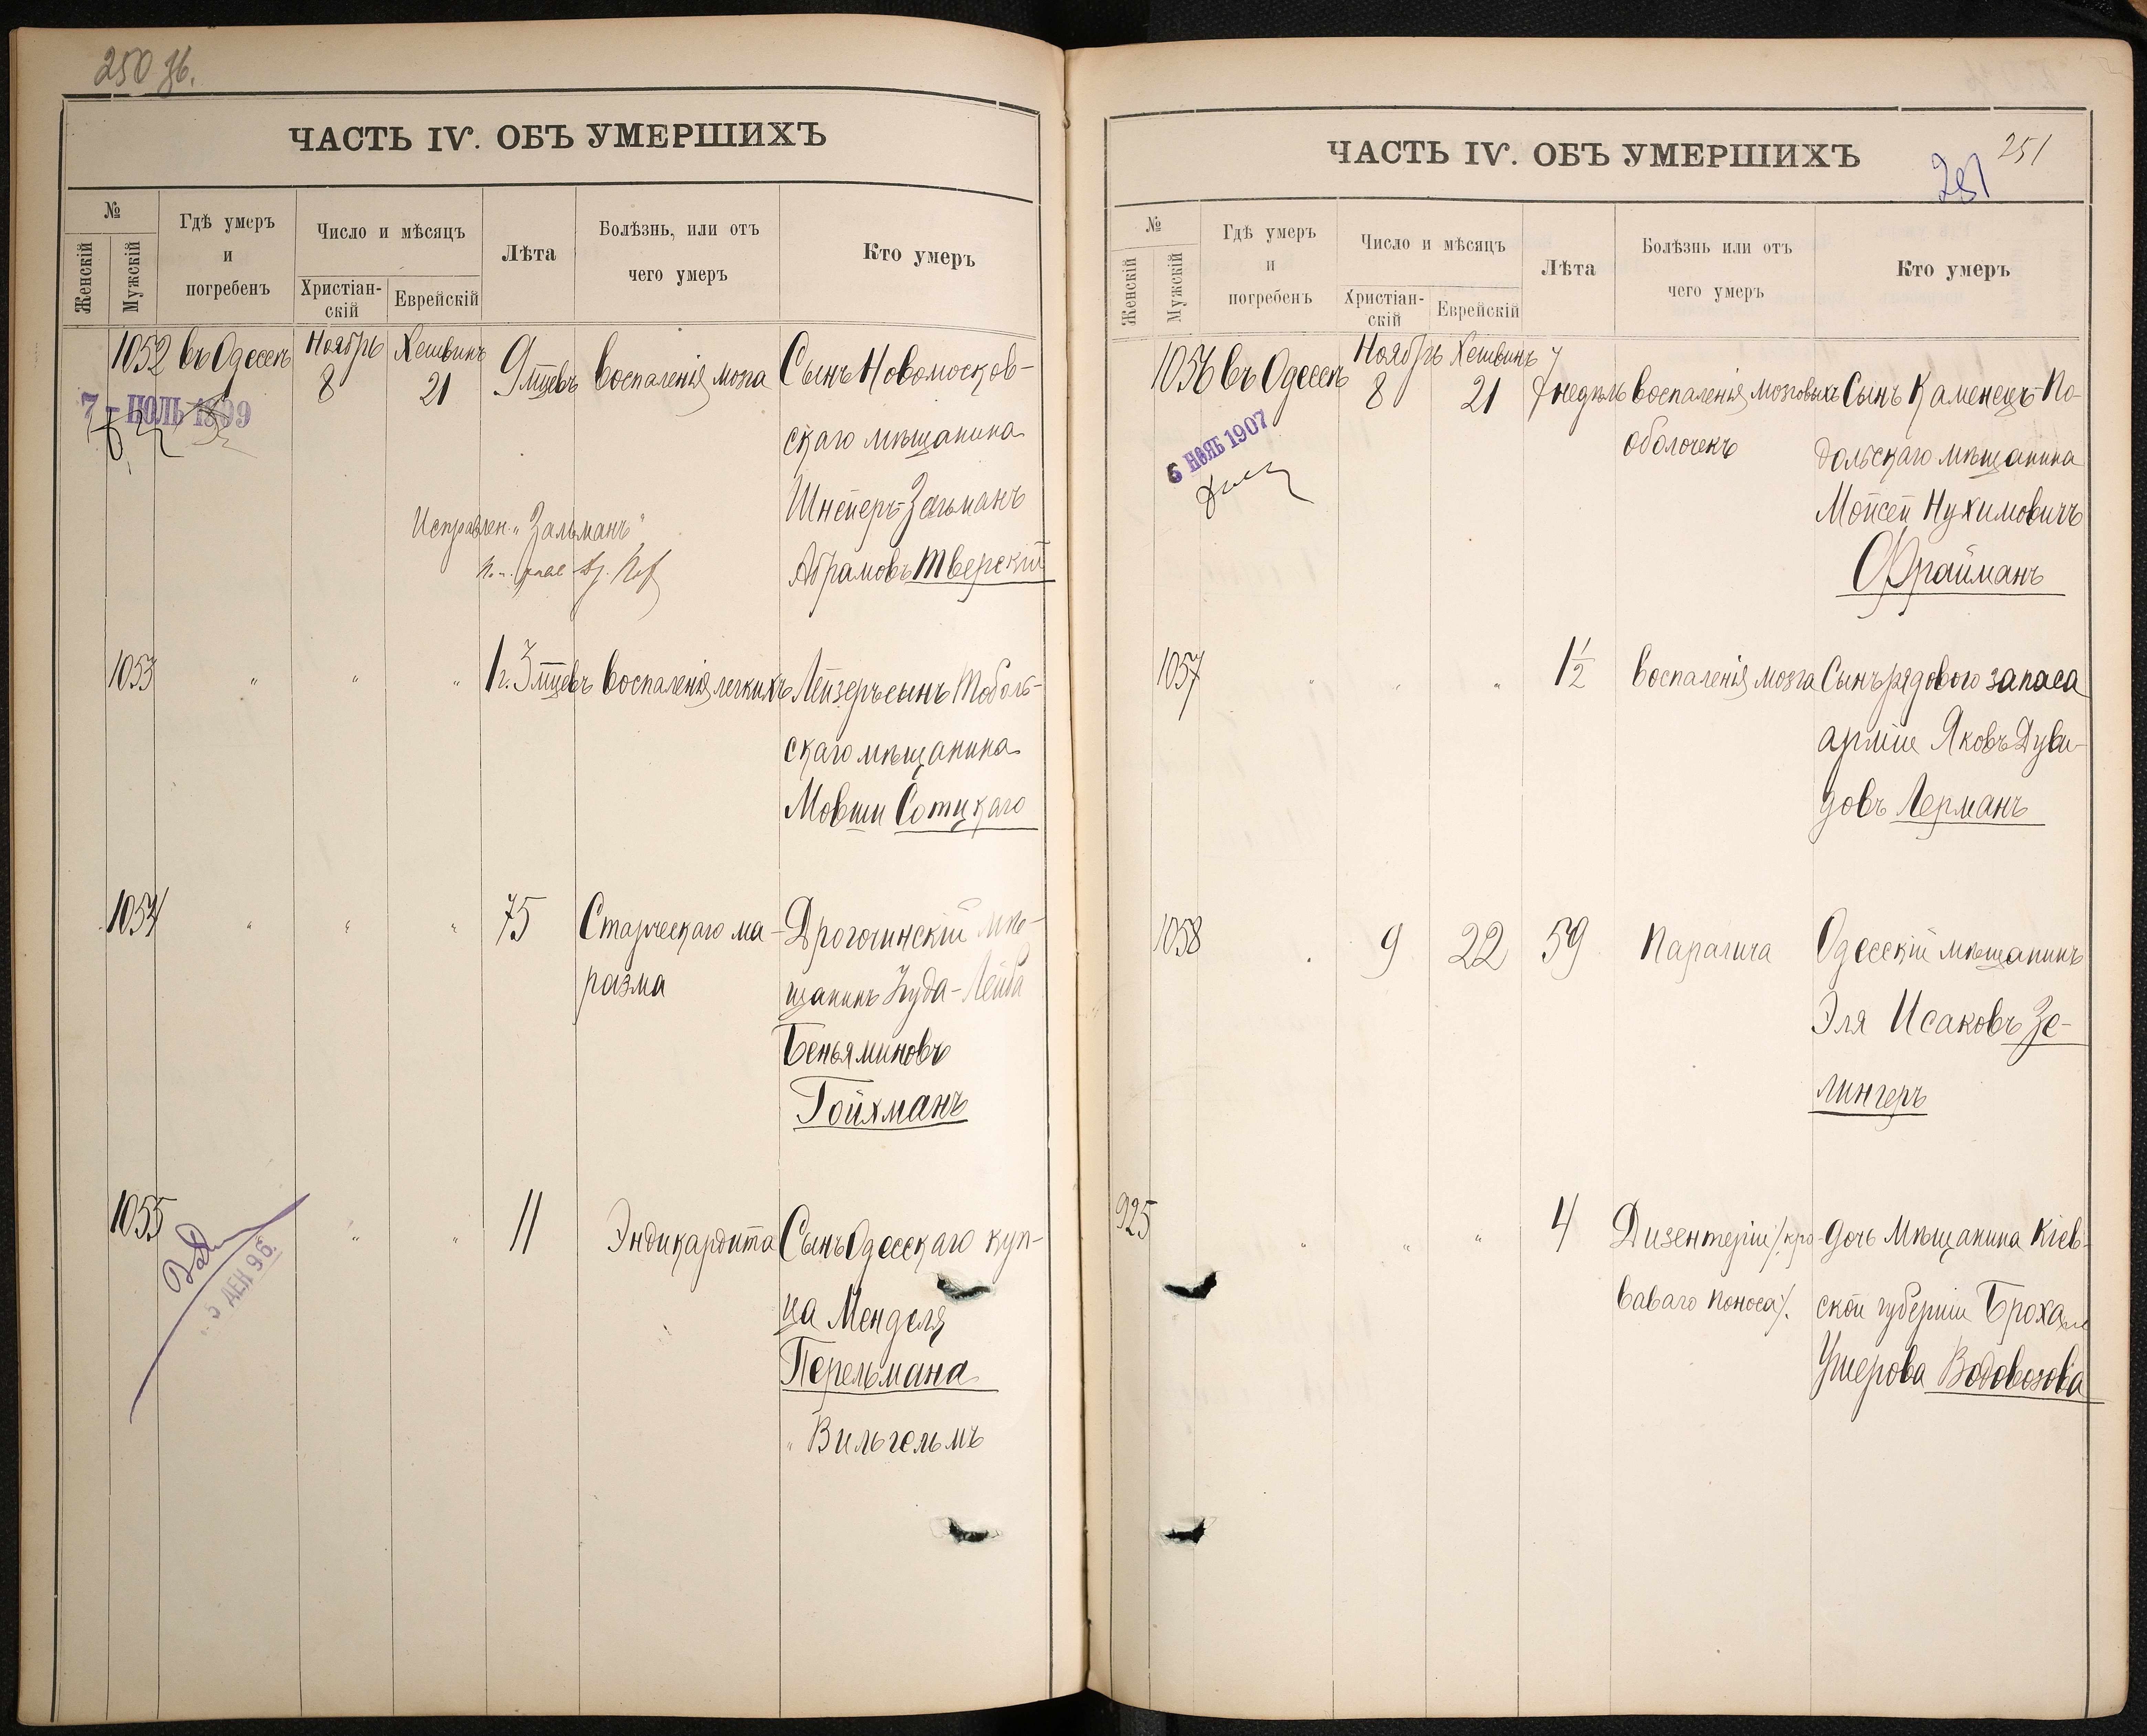 250 зв.
ЧАСТЬ IV. ОБЪ УМЕРШИХЪ
№
Женскій
Мужскій
Гдѣ умеръ
и
погребенъ
Число и мѣсяцъ
Христіан-
скій
Еврейскій
Лѣта
Болѣзнь, или отъ
чего умеръ
Кто умеръ
1052 въ Одессѣ Ноябрь 8 Хешвинъ 21 9 мцевъ воспаленія мозга Сынъ Новомосков-
скаго мѣщанина
Шнеперъ-Зальманъ
Абрамовъ Тверскій
7 - ІЮЛЬ 1899
Исправлен. "Зальманъ"
1053 " " " 1 г. 3 мцевъ воспаленія легкихъ Лейзеръ сынъ Тоболь-
скаго мѣщанина
Мовши Сотцкаго
1054 " " " 75 Старческаго ма- Дрогочинскій мѣ-
разма щанинъ Іуда-Лейба
Беньяминовъ
Гойхманъ
1055 " " 11 Эндикардита Сынъ Одесскаго куп-
ца Менделя
Перельмана
" Вильгельмъ
5 ДЕК 96.
ЧАСТЬ IV. ОБЪ УМЕРШИХЪ
251
251
№
Женскій
Мужскій
Гдѣ умеръ
и
погребенъ
Число и мѣсяцъ
Христіан-
скій
Еврейскій
Лѣта
Болѣзнь или отъ
чего умеръ
Кто умеръ
1056 въ Одессѣ Ноябрь 8 Хешвинъ 21 7 недѣль воспаленія мозговыхъ Сынъ Каменецъ-По-
оболочекъ дольскаго мѣщанина
Мойсей Нухимовичъ
Фрайманъ
6 НОЯБ 1907
1057 " " " 1½ воспаленія мозга Сынъ рядового запаса
арміи Яковъ Дуви-
довъ Лерманъ
1058 " 9 22 59 Паралича Одесскій мѣщанинъ
Эля Исаковъ Зе-
лингеръ
925 " " " 4 Дизентеріи /кро- дочь Мѣщанина Кіев-
ваваго поноса/. ской губерніи Броха
Ушерова Водовозова